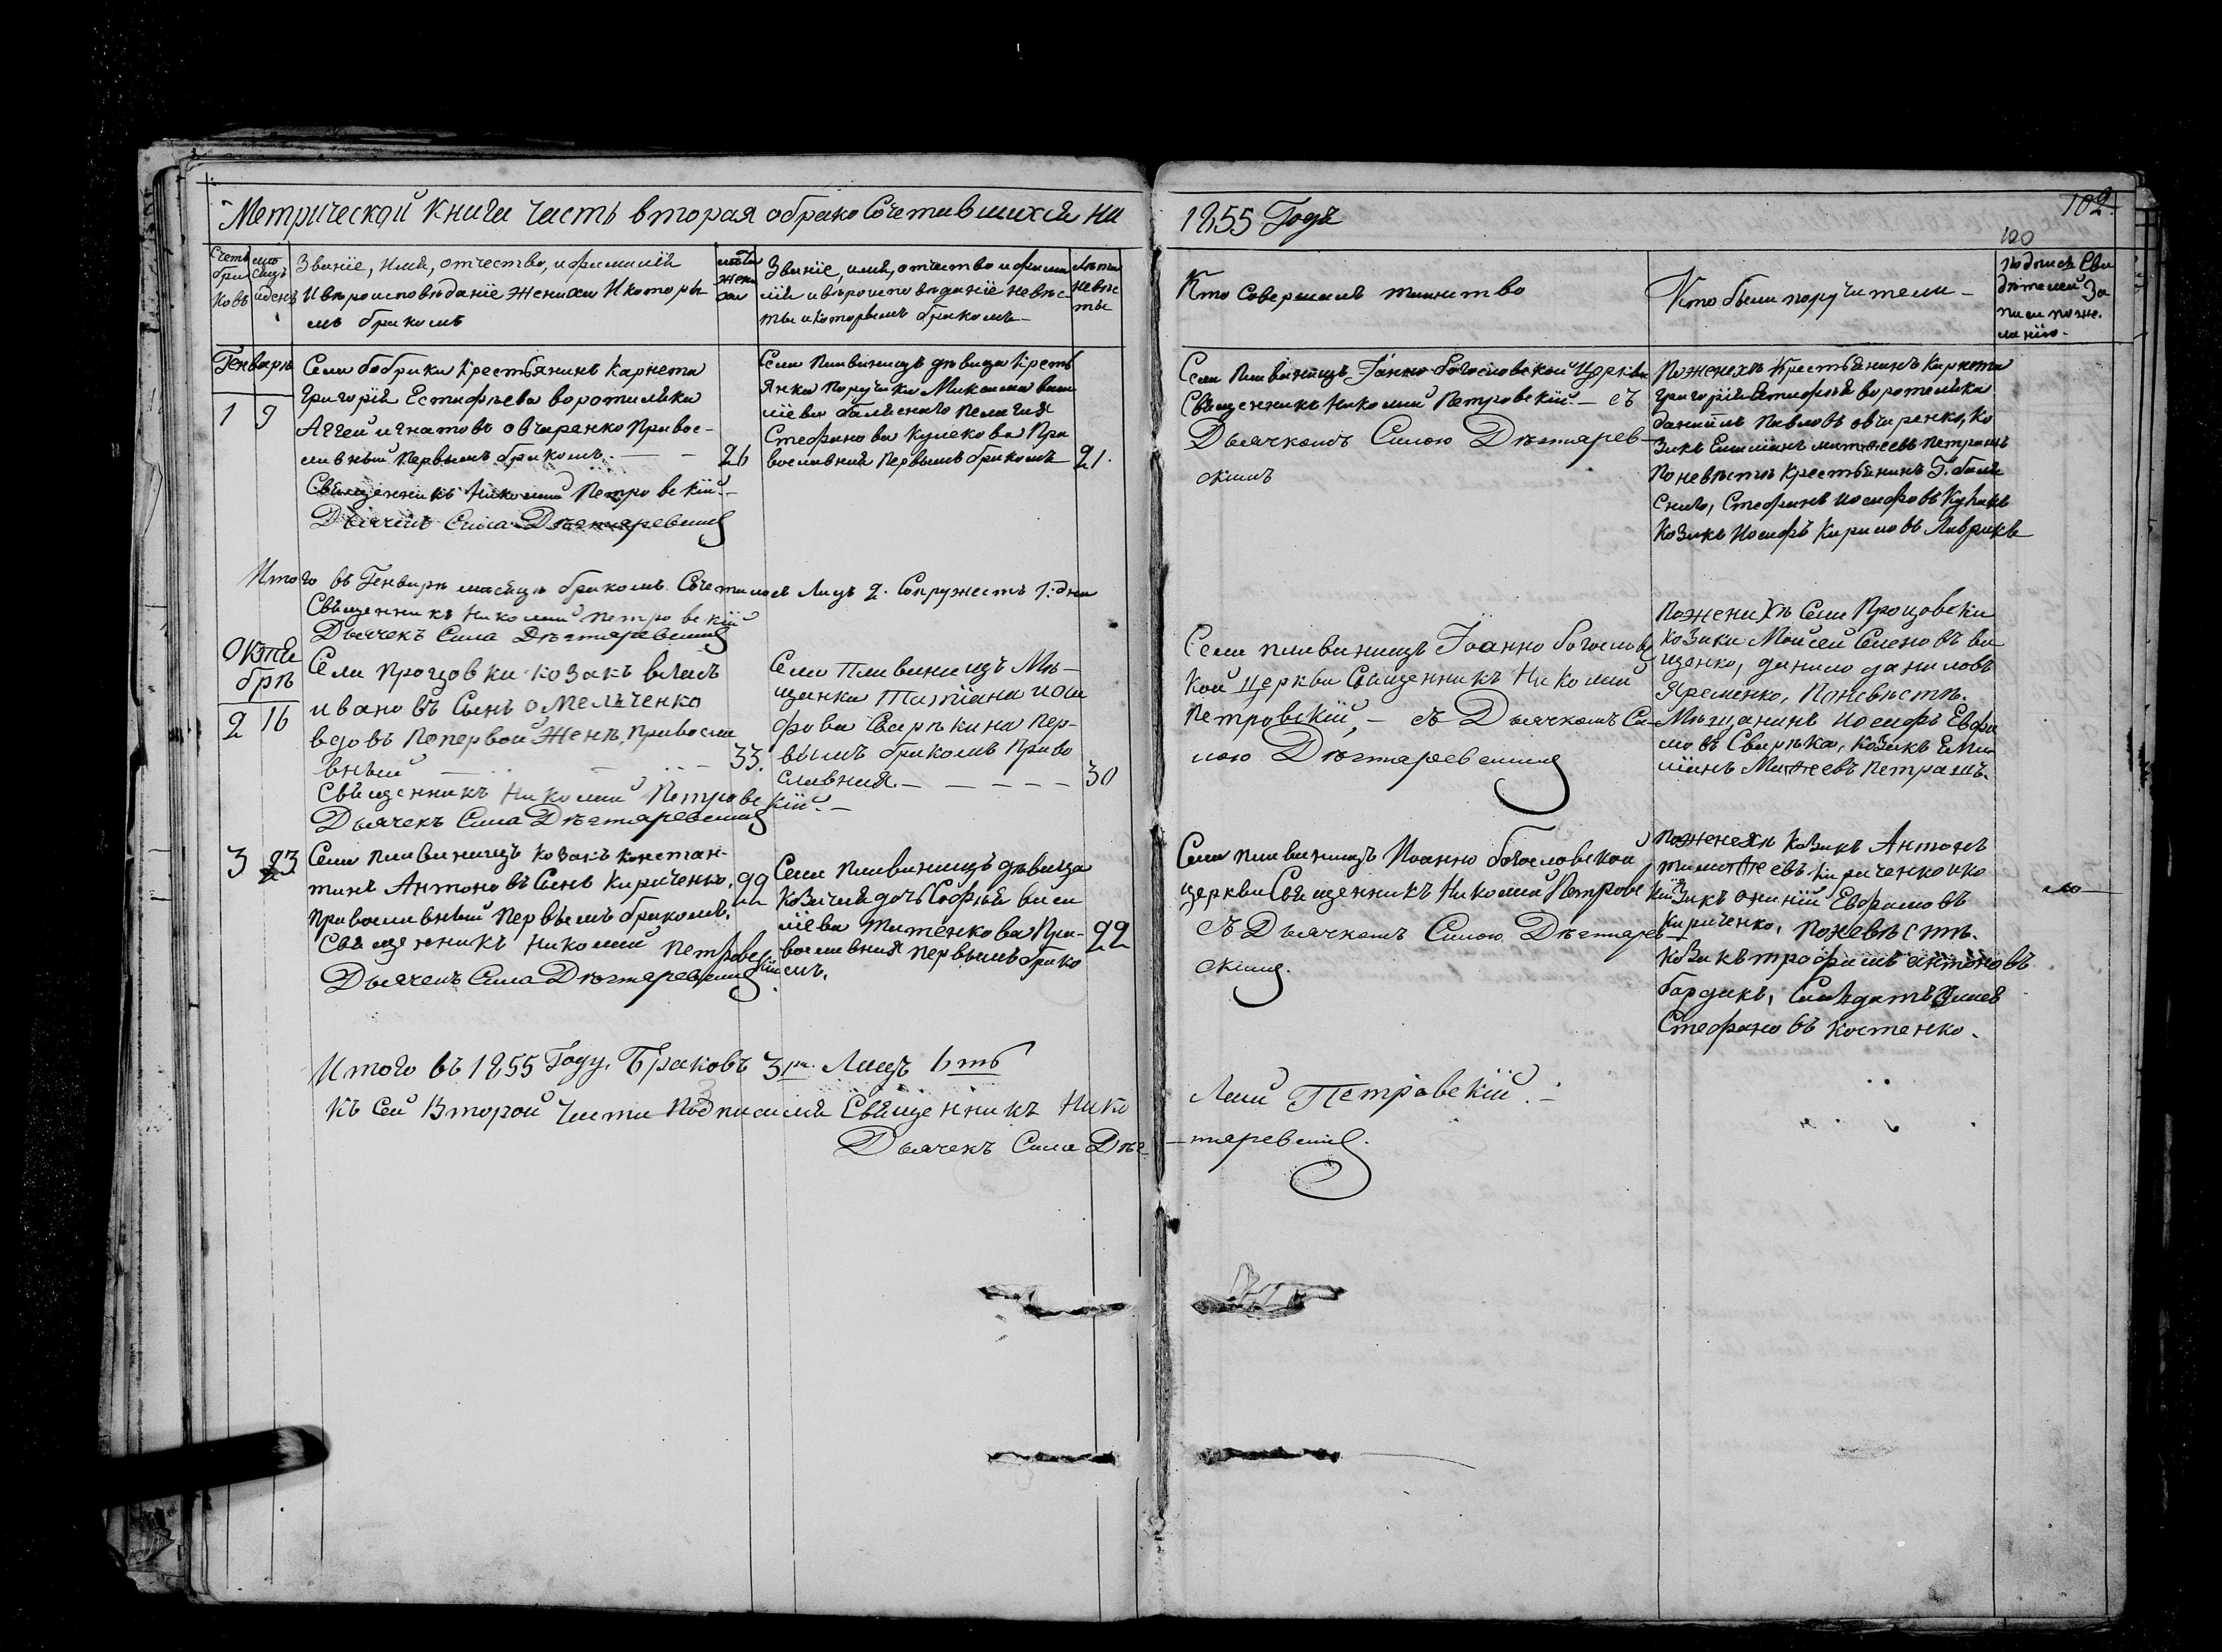 Метрической книги часть вторая о бракосочетавшихся на
1855 Годъ
102.
120
Счетъ браковъ
мѣсяцъ и день
Званіе, имя, отчество, и фамилія
и вѣроисповѣданіе жениха и которы
мъ бракомъ
лѣта жениха
Званіе, имя, отчество и фами
лія и вѣроисповѣданіе невѣс
ты и которымъ бракомъ
лѣта невѣс
ты
Кто совершалъ таинство
Кто были поручители
подпись сви
дѣтелей за
писи по же
ланію.
Генварь
1 9
Села бобрики крестьянинъ карнета
Григорій Естафьева воротиляка
Аггей игнатовъ овчаренко Правос-
лавный первымъ бракомъ. 26
Священникъ Николай Петровскій.
Дьячекъ Сила Дѣгтяревскій
Села Плавинищъ дѣвица кресть
янка поручика Михаила васи
ліева балясного пелагія
Стефанова кулекова Пра
вославная первымъ бракомъ 21.
Села Плавинищъ Іанно богословской церкви
Священникъ Николай Петровскій. – съ
Дьячкомъ Силою Дѣгтярев
скимъ
По женехѣ крестьянинъ карнета
Григорій Естафьй воротеляка
даніилъ Павловъ овчаренко, ко
закъ Емиліянъ матѳеевъ петрашъ
По невѣстѣ крестьянинъ Г. баля
сного, Стефанъ иосифовъ
козакъ Иосифъ Кириловъ Лаврикъ
Итого въ Генварѣ месяцѣ бракомъ Счеталось Лицъ 2. Сопружествъ 1: дни
Священникъ Николай Петровскій
Дьячекъ Сила Дѣгтяревскій
Октя
брь
2 16
Села Процовки козакъ власъ
ивановъ Сынъ омельченко
вдовъ по первой женѣ, правосла
вный 33.
Священникъ Николай Петровскій. –
Дьячекъ Сила Дѣгтяревскій
Села плавинищъ Мѣ-
щанка татіана иоси
фова Свирѣкина пер-
вымъ бракомъ право
славная. 30
Села плавинищъ Іоанно богословс
кой церкви Священникъ Николай
Петровскій, – съ Дьячкомъ Си-
лою Дѣгтяревскимъ
По женихѣ Села Процовски
козаки Моисей Семеновъ ва
щенко, данило даниловъ
Яременко, По невѣстѣ.
Мѣщанинъ иосифъ Евфи
мовъ Свирѣка, козакъ Еми
ліянъ Матѳеевъ петрашъ.
3 23
Села плавинищъ козакъ констан-
тинъ Антоновъ Сынъ Кириченко, 22
православный первымъ бракомъ.
Священникъ николай Петровскій
Дьячекъ Сила Дѣгтяревскій.
Села плавинищъ дѣвица
козачая дочь Софья васи
ліева титенкова Пра- 22
вославная первымъ брако
мъ.
Села плавинищъ Иоанно богословской
церкви Священникъ Николай Петровскій
съ Дьячкомъ Силою Дѣгтярев
скимъ.
По женехѣ козакъ Антонъ
тимоѳеевъ кириченко и ко
закъ Ананій Евфимовъ
Кириченко, По невѣстѣ.
козакъ трофимъ антоновъ
бардакъ, Салдатъ
Стефановъ костенко.
Итого въ 1855 Году, Браковъ 3ри. Лицъ 6ть
3
Къ сей Второй части подписался Священникъ Нико
лай Петровскій. –
Дьячекъ Сила Дѣг
тяревскій.